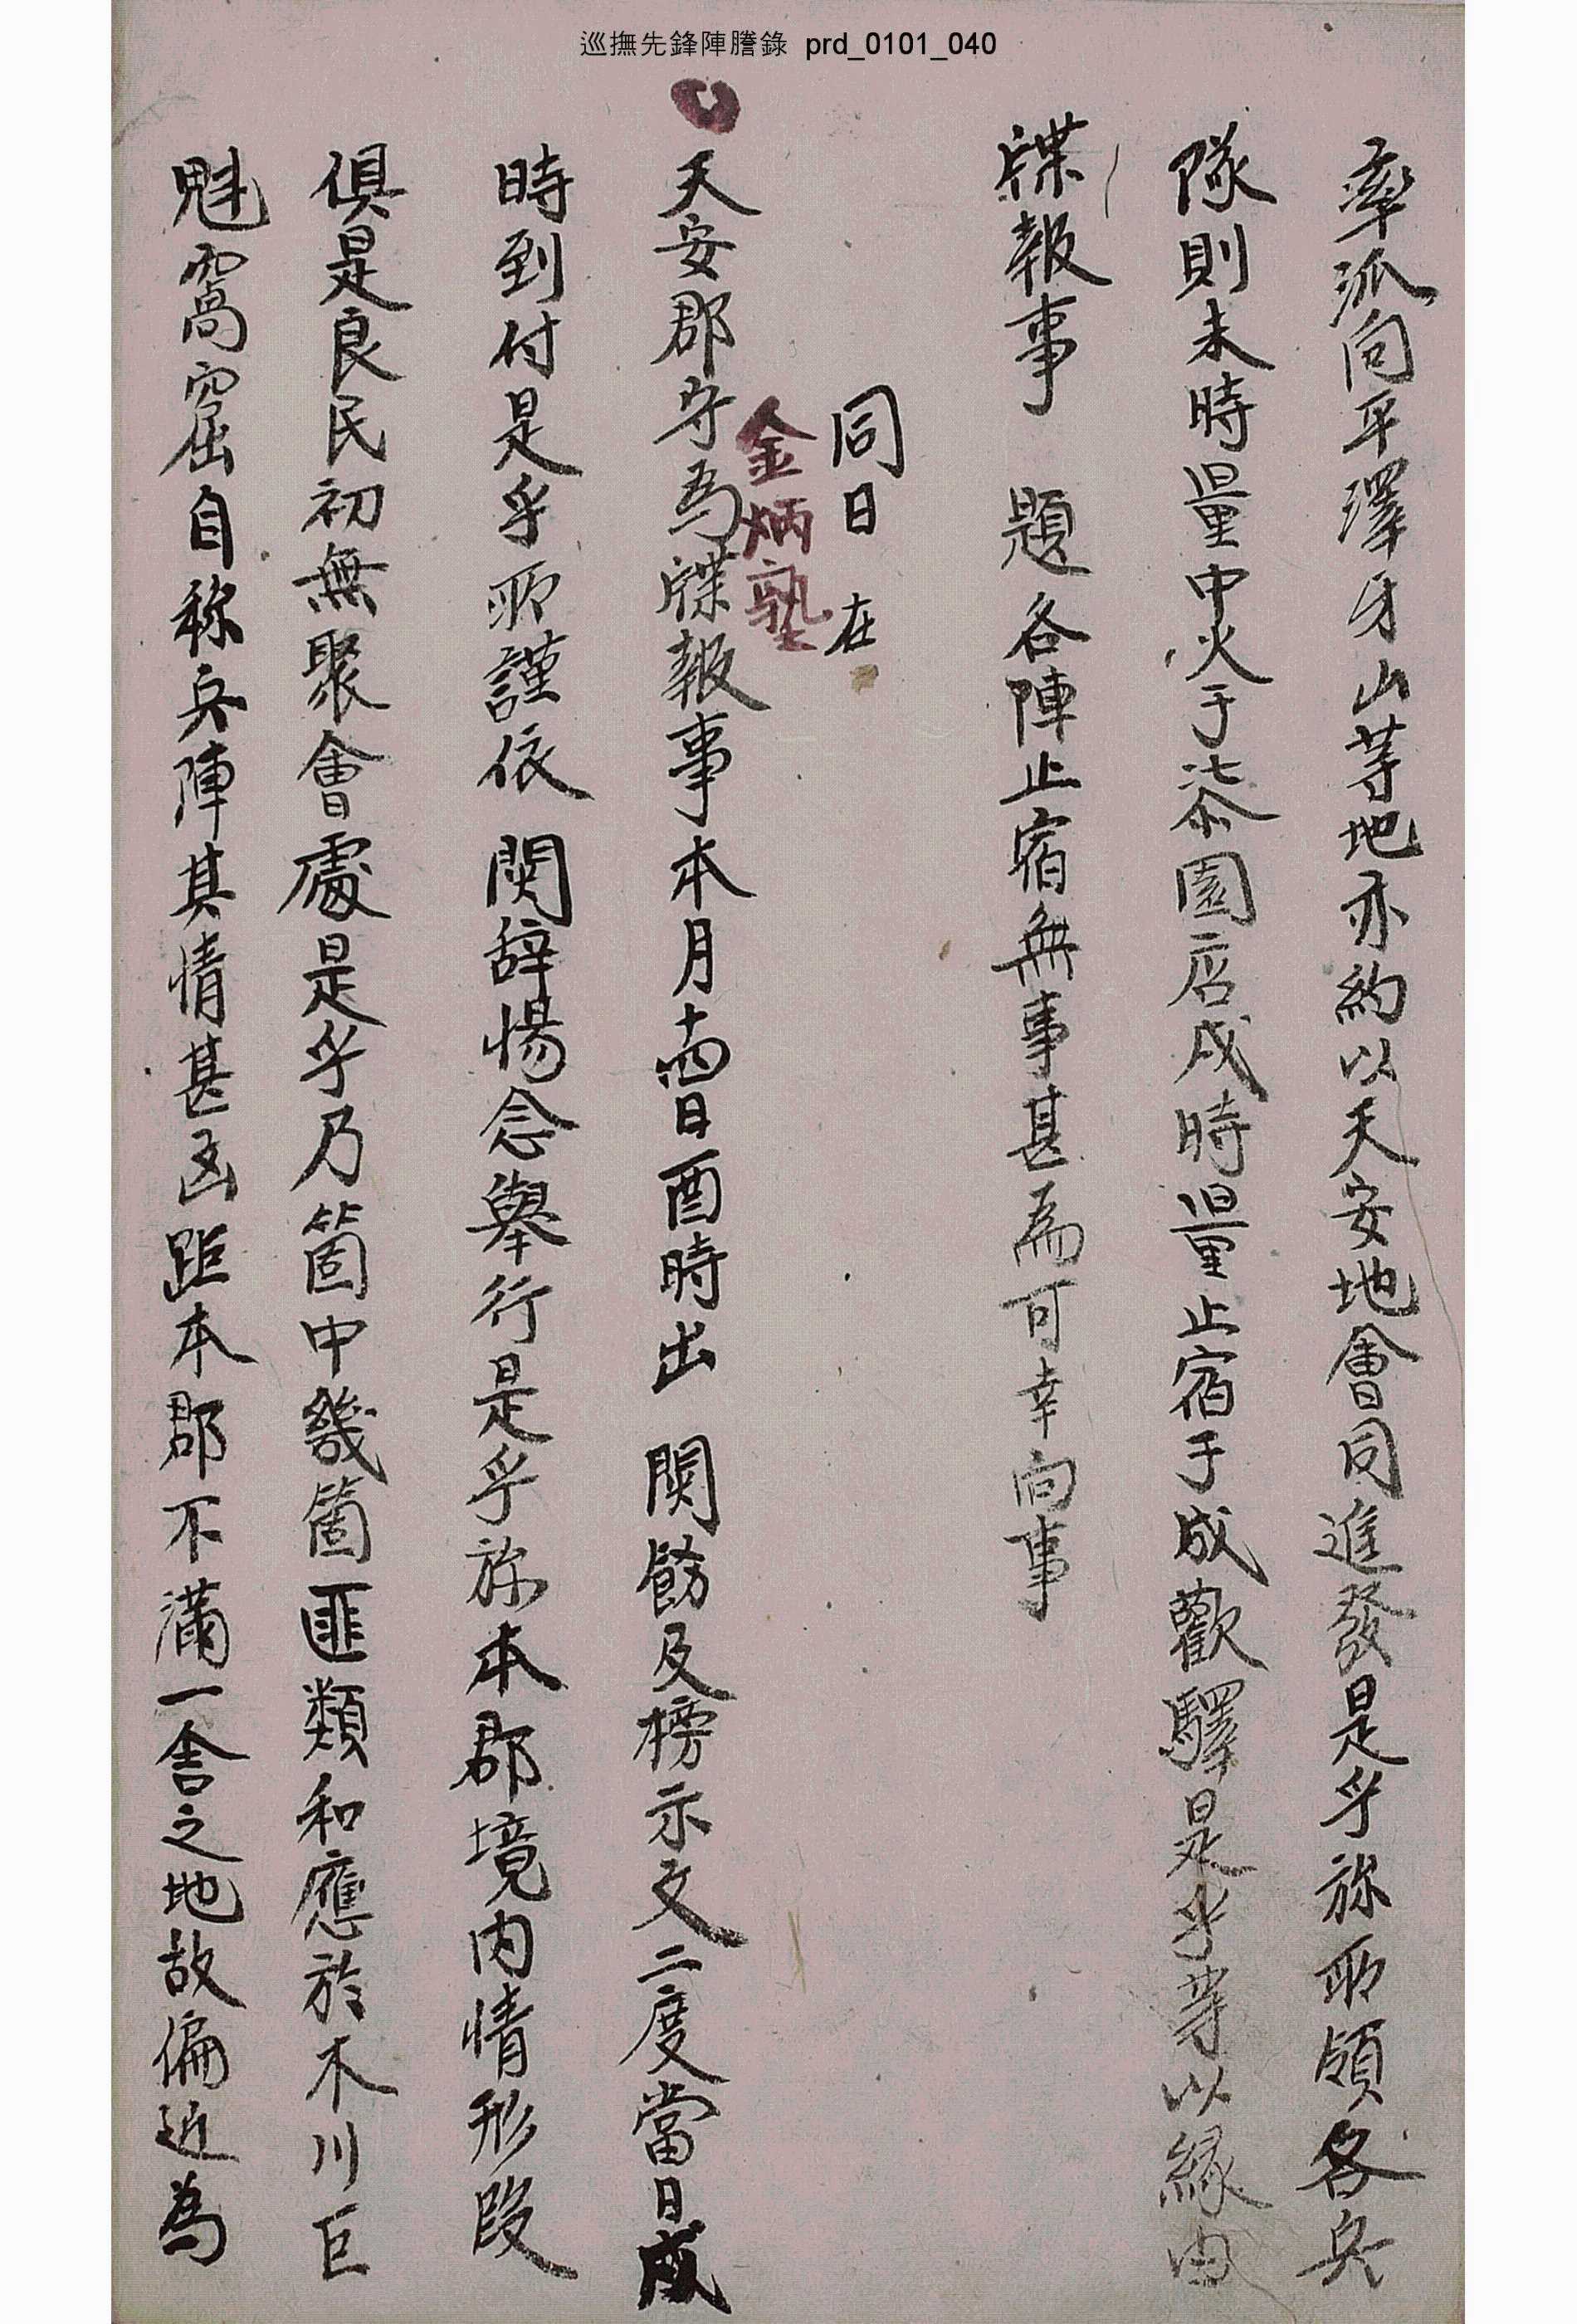 巡撫先鋒陣謄錄 prd_0101_040
率派向平澤牙山等地亦約以天安地會同進發是乎旀所領各兵
隊則未時量中火于柒園店戌時量止宿于成歡驛是乎等以緣由
牒報事 題各陣止宿無事甚爲可幸向事
同日 在
金炳塾
天安郡守爲牒報事本月十四日酉時出 関飭及榜示文二度當日戌
時到付是乎所謹依 関辞惕念舉行是乎旀本郡境內情形段
俱是良民初無聚會處是乎乃箇中幾箇匪類和應於木川巨
魁窩窟自称兵陣其情甚凶距本郡不滿一舍之地故偏近為